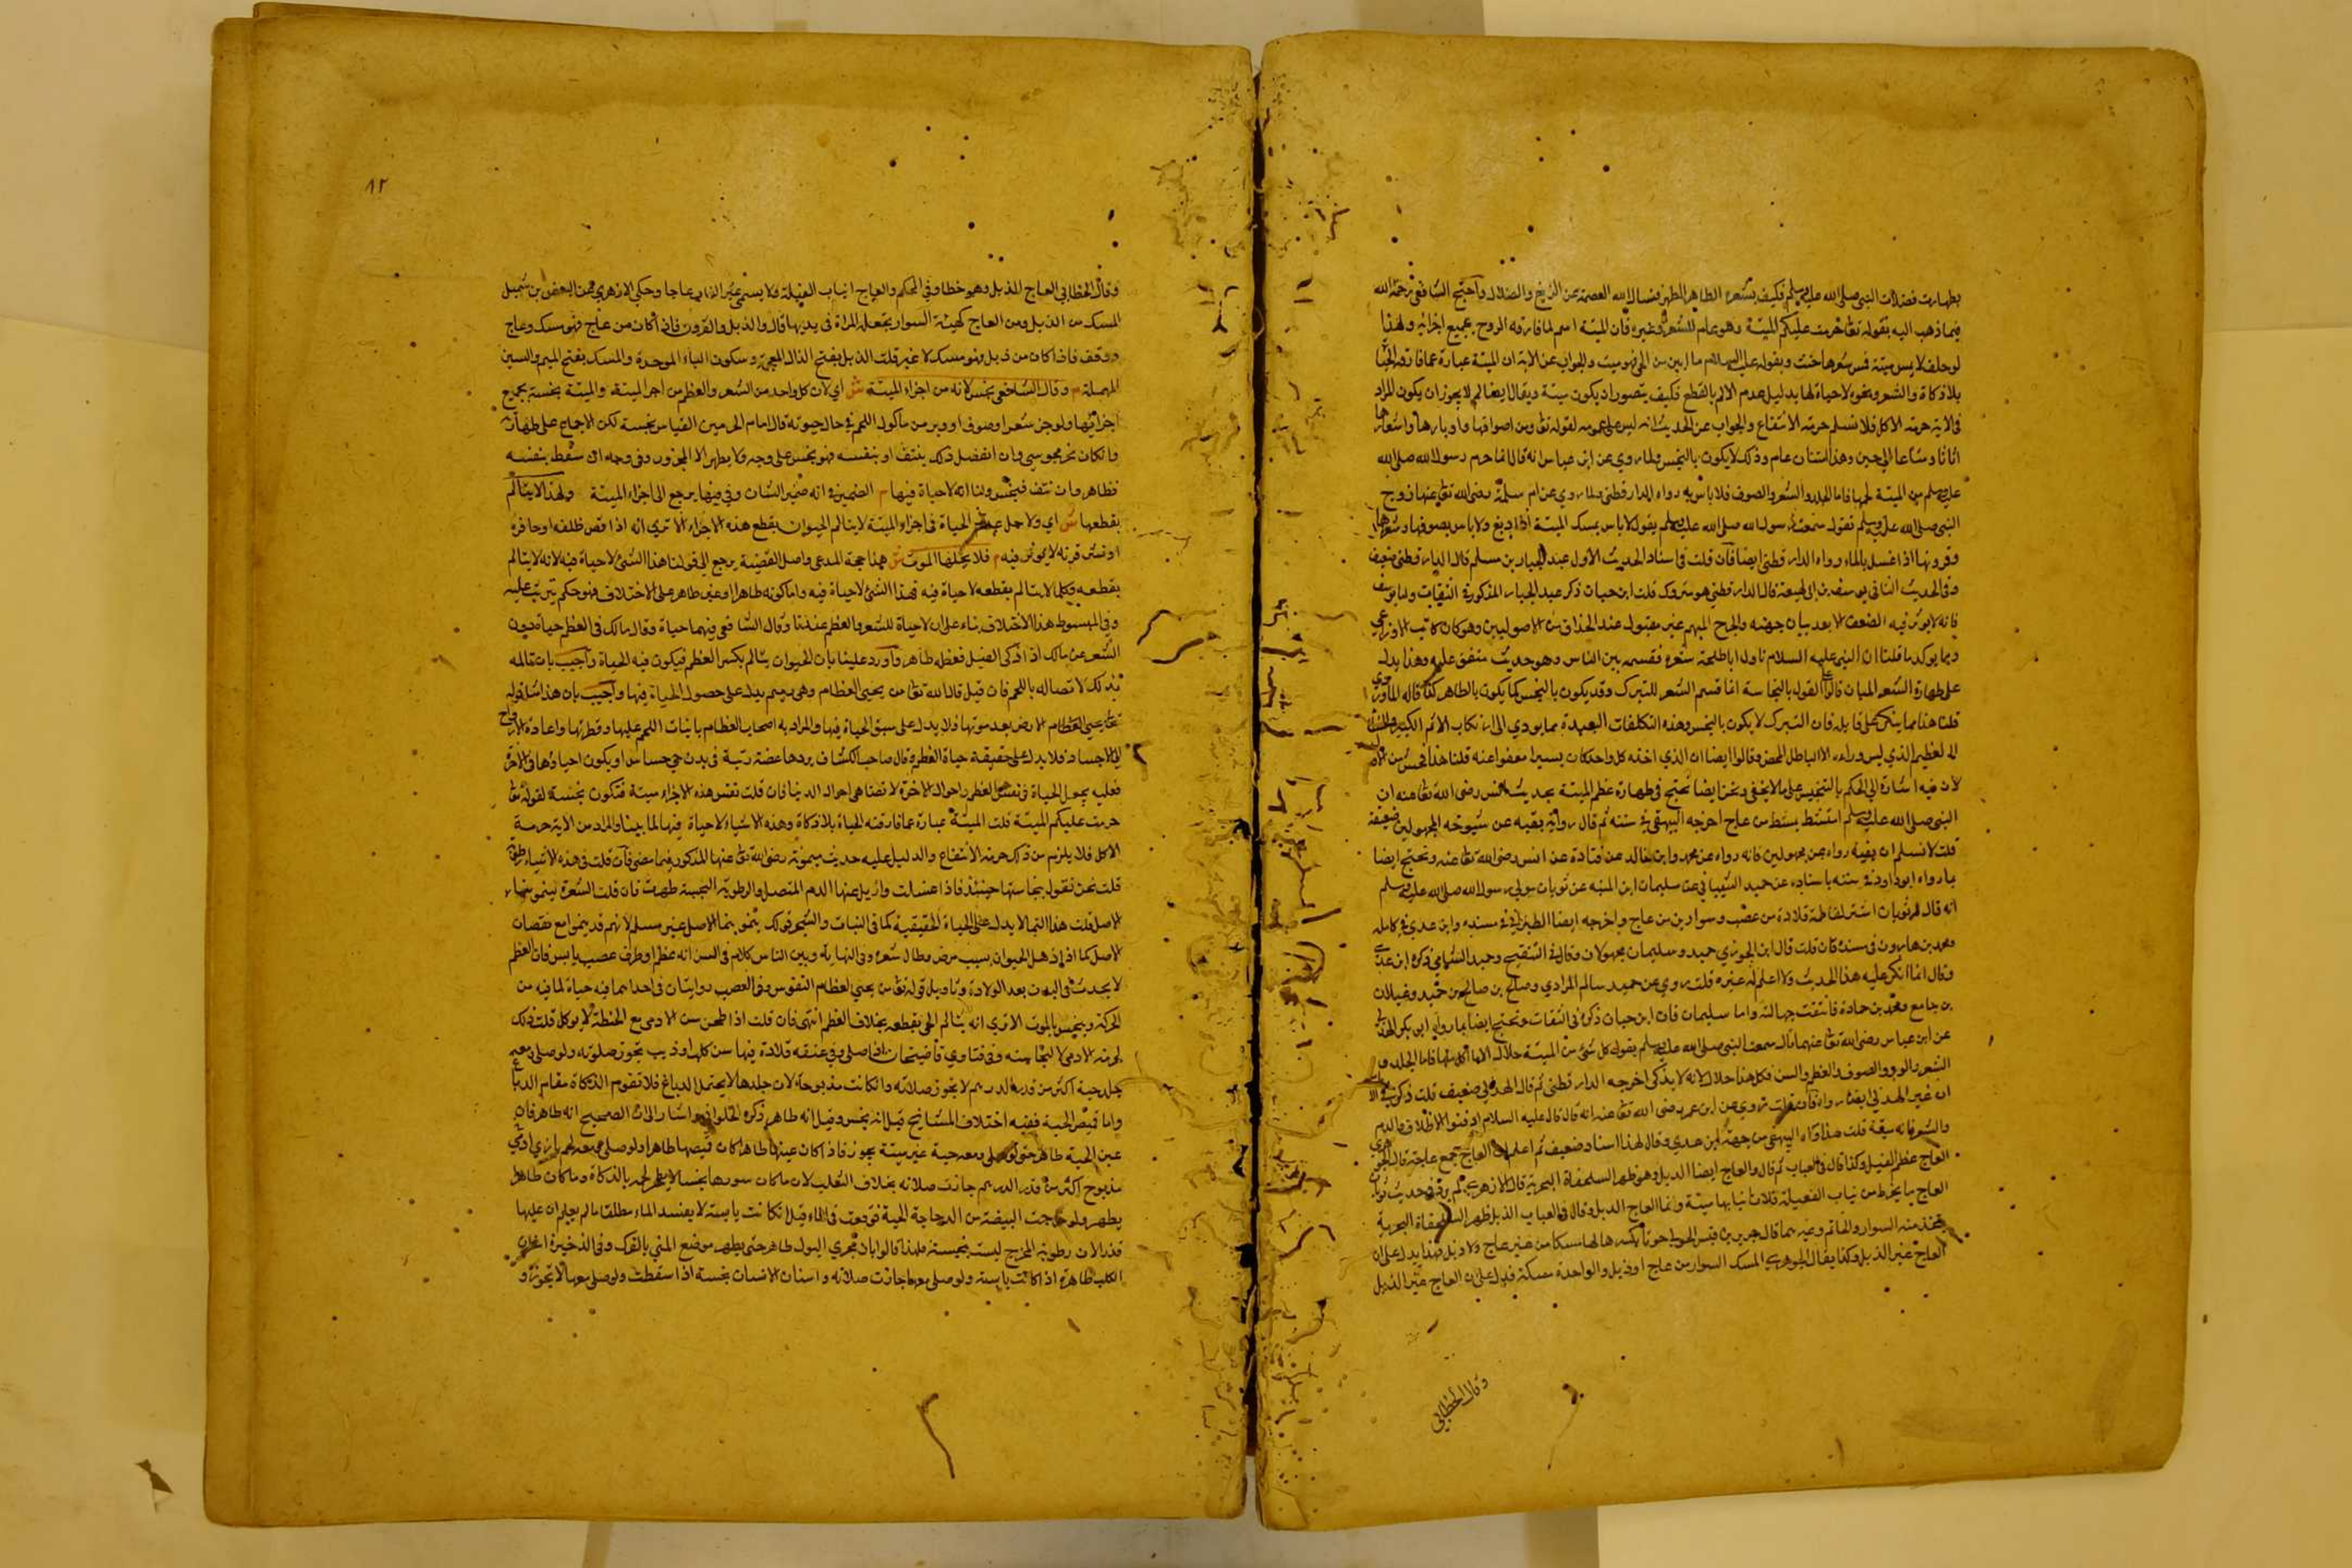 بطهارت فضلات النبي صلى الله عليه وسلم فكيف بشعره الطاهر المطهر فنسال الله العصمة عن الزيغ والضلال واحتج الشافعي رحمه الله
فيما ذهب اليه بقوله تعا حرمت عليكم الميتة وهو عام للشعر وغيره فان الميتة اسم لما فارقه الروح بجميع اجزائه ولهذا
لو حلف لا يمس ميتة فمس شعرها حنث وبقوله عليه السلام ما ابين من الحي فهو ميت والجواب عن الاية ان الميتة عبارة عما فارقه الحيا
بلا ذكاة والشعر ونحوه لا حياة لها بدليل عدم الالم بالقطع فكيف يتصور ان يكون ميتة ويقال ايضا لم لا يجوز ان يكون المراد
في الاية حرمة الاكل فلا نسلم حرمة الانتفاع والجواب عن الحديث انه ليس على عمومه لقوله تعا ومن اصوافها واوبارها واشعارها
اثاثا ومتاعا الى حين وهذا امتنان عام وذلك لا يكون بالنجس ولما روي عن ابن عباس انه قال انما حرم رسول الله صلى الله
عليه وسلم من الميتة لحمها فاما الجلد والشعر والصوف فلا باس به رواه الدارقطني ولما روي عن ام سلمة رضى الله تعا عنها زوج
النبي صلى الله عليه وسلم تقول سمعت رسول الله صلى الله عليه وسلم يقول لا باس بمسك الميتة اذا دبغ ولا باس بصوفها وشعرها
وقرونها اذا غسل بالماء رواه الدارقطني ايضا فان قلت في اسناد الحديث الاول عبد الجبار بن مسلم قال الدارقطني ضعيف
وفي الحديث الثاني يوسف بن ابي لهيعة قال الدارقطني هو متروك قلت ابن حبان ذكر عبد الجبار المذكور في الثقات واما يوسف
فانه لا يوثر فيه الضعف الا بعد بيان جهته والجرح المبهم غير مقبول عند الحذاق من الاصوليين وهو كان كاتب الاوزاعي
ومما يوكد ما قلنا ان النبي عليه السلام ناول ابا طلحة شعره فقسمه بين الناس وهو حديث متفق عليه وهذا يدل
على طهارة الشعر المبان قالوا القول بالنجاسة انما قسم الشعر للتبرك وقد يكون بالنجس كما يكون بالطاهر كذا قاله الماوردي
قلنا هذا مما ينكر على قايله فان التبرك لا يكون بالنجس وهذه التكلفات البعيدة مما يودي الى ارتكاب الاثم الكبير
العظيم الذي ليس وراءه الا الباطل المحض وقالوا ايضا ان الذي اخذه كل واحد كان يسيرا معفوا عنه قلنا هذا
لان فيه اشارة الى الحكم بالتنجيس على ما لا يخفى ونحن ايضا نحتج في طهارة عظم الميتة بحديث انس رضى الله تعا عنه ان
النبي صلى الله عليه وسلم امتشط بمشط من عاج اخرجه البيهقي في سننه ثم قال رواية بقيه عن شيوخه المجهولين ضعيفة
قلت لا نسلم ان بقية رواه عن مجهولين فانه رواه عن محمد وابن خالد عن قتادة عن انس رضى الله تعا عنه ونحتج ايضا
بما رواه ابو داود في سننه باسناده عن حميد الشيباني عن سليمان ابن المنبه عن ثوبان مولى رسول الله صلى الله عليه وسلم
انه قال لثوبان اشتر لفاطمة قلادة من عصب وسوارين من عاج واخرجه ايضا الطبراني في مسنده وابن عدي في كامله
ومحمد بن هارون في مسنده فان قلت قال ابن الجوزي حميد وسليمان مجهولان وقال في التنقيح وحميد الشامي ذكره ابن عدي
وقال انما انكر عليه هذا الحديث ولا اعلم له غيره قلت روي عن حميد سالم المرادي وصالح بن صالح بن حميد وغيلان
بن جامع ومحمد بن حجادة فانتفت جهالته واما سليمان فان ابن حبان ذكره في الثقات ونحتج ايضا بما رواه ابن بكر الهذلي
عن ابن عباس رضى الله تعا عنهما قال سمعت النبي صلى الله عليه وسلم يقول كل شي من الميتة حلال الا ما اكل منها فاما الجلد و
الشعر والوبر والصوف والعظم والسن فكل هذا حلال لانه لا يذكى اخرجه الدارقطني ثم قال الهذلي ضعيف قلت ذكر
ان غير الهذلي ايضا رواه فان قلت روي عن ابن عمر رضى الله تعا عنه انه قال قال عليه السلام ادفنوا الاظفار والدم
والشعر فانه ميتة قلت هذا رواه البيهقي من جهة ابن عدي وقال لهذا اسناد ضعيف ثم اعلم ان العاج جمع عاجة قال الجوهري
العاج عظم الفيل وكذا قال في العباب ثم قال والعاج ايضا الذبل وهو ظهر السلحفاة البحرية قال الازهري لم يرد في حديث ثوبان
العاج ما يخرط من نياب الفيلة فلان نيابها ميتة وانما العاج الذبل وقال في العباب الذبل ظهر السلحفاة البحرية
يتخذ منه السوار والخاتم وغيرهما قال جرير
العاج غير الذبل وكذا يقال الجوهري المسك السوار من عاج او ذبل والواحدة مسكة فدل على ان العاج غير الذبل
وقال الخطابي
١٢
وقال الخطابي العاج الذبل وهو خطا وفي المحكم والعياج انياب الفيلة ولا يسمى غير الناب عاجا وحكى الازهري عن النضر بن شميل
المسك من الذبل ومن العاج كهيئة السوار تجعله المراة في يديها قال والذبل والقرون فاذا كان من عاج فهو مسك وعاج
ووقف فاذا كان من ذبل فهو مسك لا غير قلت الذبل بفتح الذال المعجمة وسكون الباء الموحدة والمسك بفتح الميم والسين
المهملة م وقال الشافعي نجس لانه من اجزاء الميتة ش اي لان كل واحد من الشعر والعظم من اجزا الميتة والميتة نجسة بجميع
اجزائها ولو جز شعر او صوف او وبر من ماكول اللحم في حال حيوته قال امام الحرمين القياس نجسة لكن الاجماع على طهارته
وان كان جز مجوسي وان انفصل ذلك بنتف او بنفسه فهو نجس على وجه ولا يطهر الا المجزوز وفي وجه ان سقط بنفسه
فطاهر وان نتف فنجس ولنا انه لا حياة فيهما م الضمير في انه ضمير الشان وفي فيهما يرجع الى اجزاء الميتة ولهذا لا يتالم
بقطعها ش اي ولاجل عدم الحياة في اجزاء الميتة لا يتالم الحيوان بقطع هذه الاجزاء الا ترى انه اذا قص ظلفه او حافره
او نشر قرنه لا يوثر فيه م فلا يحلها الموت ش هذا حجة المدعى واصل القضية يرجع الى قولنا هذا الشئ لا حياة فيه لانه لا يتالم
بقطعه وكلما لا يتالم بقطعه لا حياة فيه فهذا الشئ لا حياة فيه واما كونه طاهرا او غير طاهر على الاختلاف فهو حكم يترتب عليه
وفي المبسوط هذا الاختلاف بناء على ان لا حياة للشعر والعظم عندنا وقال الشافعي فيهما حياة وقال مالك في العظم حياة دون
الشعر عن مالك اذا ذكى الفيل فعظمه طاهر واورد علينا بان الحيوان يتالم بكسر العظم فيكون فيه الحياة واجيب بان تالمه
بذلك لاتصاله باللحم فان قيل قال الله تعا من يحيي العظام وهي رميم يدل على حصول الحياة فيها واجيب بان هذا مثل قوله
تعا يحيي الارض بعد موتها فلا يدل على سبق الحياة فيها والمراد به اصحاب العظام باثبات اللحم عليها وفطرتها واعادة الارواح
الى الاجساد فلا يدل على حقيقة حياة العظم وقال صاحب الكشاف بردها غضة رطبة في بدن حي حساس او يكون احياؤها في الاخرة
فعليه بجعل الحياة في نفس العظم واحوال الاخرة لا تضاهي احوال الدنيا فان قلت نفس هذه الاجزاء ميتة فتكون نجسة لقوله تعا
حرمت عليكم الميتة قلت الميتة عبارة عما فارقته الحياة بلا ذكاة وهذه الاشياء لا حياة فيها لما بينا والمراد من الاية حرمة
الاكل فلا يلزم من ذلك حرمة الانتفاع والدليل عليه حديث ميمونة رضى الله تعا عنها المذكور فيما مضى فان قلت في هذه الاشياء رطوبة
قلت نحن نقول بنجاستها حينئذ فاذا غسلت وازيل عنها الدم المتصل والرطوبة النجسة طهرت فان قلت الشعرة ينمو بنماء
الاصل قلت هذا النما لا يدل على الحياة الحقيقية كما في النبات والشجر قولك ينمو بنما الاصل غير مسلم لانهم قد ينموا مع نقصان
الاصل كما اذا هزل الحيوان بسبب مرض وطال شعره وفي النهاية وبين الناس كلام في السن انه عظم او طرف عصب يابس فان العظم
لا يحدث في البدن بعد الولادة وتاويل قوله تعا من يحيي العظام النفوس وفي العصب روايتان في احداهما فيه حياة لما فيه من
الحركة وينجس بالموت الا ترى انه يتالم الحي بقطعه بخلاف العظم انتهى فان قلت اذا طحن سن الادمي مع الحنطة لا يوكل قلت ذلك
لحرمة الادمي لا لنجاسته وفي فتاوي قاضيخان اذا صلى وفي عنقه قلادة فيها سن كلب او ذيب تجوز صلوته ولو صلى ومعه
جلد حية اكثر من قدر الدرهم لا تجوز صلاته وان كانت مذبوحة لان جلدها لا يحتمل الدباغ فلا تقوم الذكاة مقام الدباغ
واما قميص الحية ففيه اختلاف المشايخ قيل انه نجس وقيل انه طاهر ذكره الحلواني واشار الى ان الصحيح انه طاهر فان
عين الحية طاهر حتى لو صلى ومعه حية غير ميتة يجوز فاذا كان عينها طاهرا كان قميصها طاهرا ولو صلى ومعه لحم بازي او شي
مذبوح اكثر من قدر الدرهم جازت صلاته بخلاف الثعلب لان ما كان سورها نجسا لا يطهر لحمه بالذكاة وما كان طاهرا
يطهر ولو خرجت البيضة من الدجاجة الحية فوقعت في الماء قيل ان كانت يابسة لا يفسد الماء مطلقا ما لم يعلم ان عليها
قذرا لان رطوبة المخرج ليست بنجسة فلهذا قالوا بان مجرى البول طاهر حتى يطهر موضع المني بالفرك وفي الذخيرة اسنان
الكلب طاهرة اذا كانت يابسة ولو صلى معها جازت صلاته واسنان الانسان نجسة اذا سقطت ولو صلى معها لا يجوز و